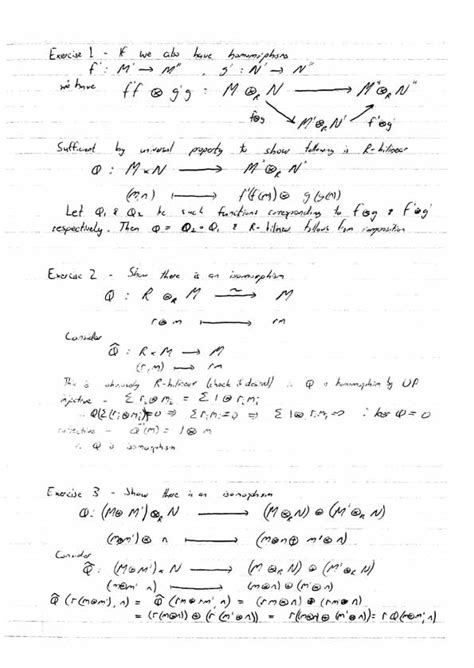 Exercise 1 - If we also have homomorphisms
f' : M' → M'' , g' : N' → N''
we have f'f ⊗ g'g : M ⊗_R N → M'' ⊗_R N''
f⊗g M' ⊗_R N' f'⊗g'
Sufficient by universal property to show following is R-bilinear
φ : M × N → M'' ⊗_R N''
(m,n) ↦ f'(f(m)) ⊗ g'(g(n))
Let φ₁ & φ₂ be such functions corresponding to f⊗g & f'⊗g'
respectively. Then φ = φ₂ ∘ φ₁ & R-bilinear follows from composition
Exercise 2 - Show there is an isomorphism
φ : R ⊗_R M → M
r⊗m ↦ rm
Consider
φ̂ : R × M → M
(r,m) ↦ rm
This is obviously R-bilinear (check if desired) ∴ φ is homomorphism by UP
injective - Σ r_i ⊗ m_i = Σ 1 ⊗ r_i m_i
φ(Σ r_i ⊗ m_i) = 0 ⇒ Σ r_i m_i = 0 ⇒ Σ 1 ⊗ r_i m_i = ∴ ker φ = 0
surjective - φ⁻¹(m) = 1 ⊗ m
∴ φ is isomorphism
Exercise 3 - Show there is an isomorphism
φ : (M⊕M') ⊗_R N → (M⊗_R N) ⊕ (M'⊗_R N)
(m⊕m') ⊗ n ↦ (m⊗n) ⊕ (m'⊗n)
Consider
φ̂ : (M⊕M') × N → (M⊗_R N) ⊕ (M'⊗_R N)
(m⊕m', n) ↦ (m⊗n) ⊕ (m'⊗n)
φ̂(r(m⊕m'), n) = φ̂(rm⊕rm', n) = (rm⊗n) ⊕ (rm'⊗n)
= (r(m⊗n)) ⊕ (r(m'⊗n)) = r((m⊗n)⊕(m'⊗n)) = rφ̂(m⊕m', n)